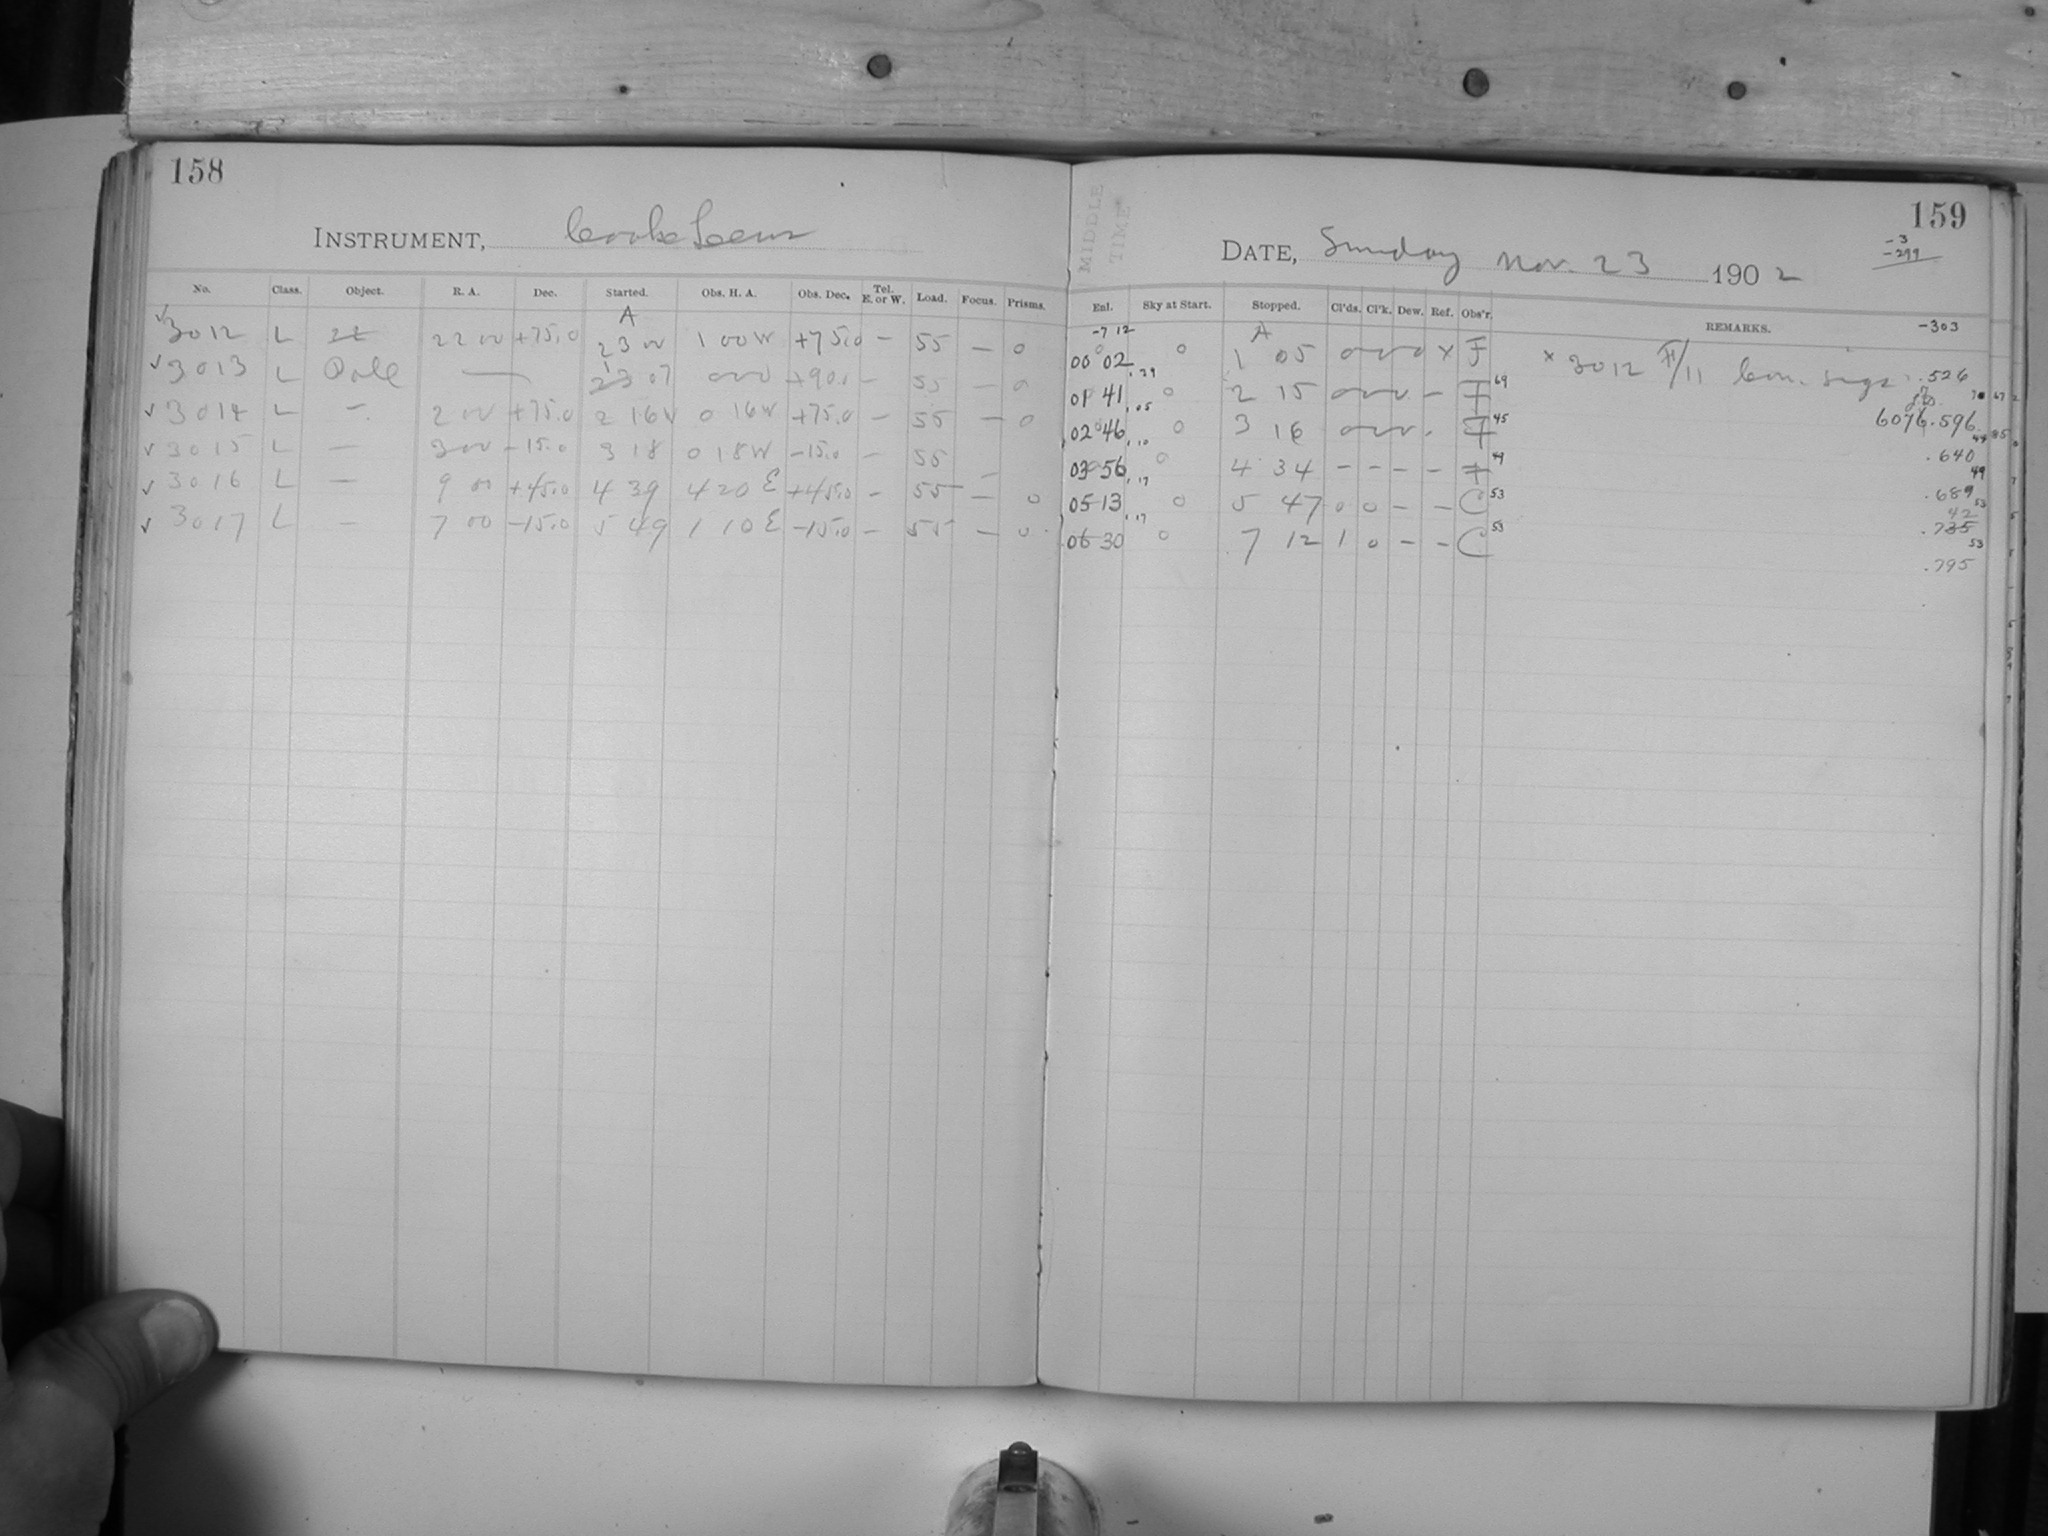 158
INSTRUMENT, Cooke Lens
No. Class. Object. R. A. Dec. Started. Obs. H. A. Obs. Dec. Tel. E. or W. Load. Focus. Prisms.
A
3012 L 22 00 +75.0 23 00 1 00 W +75.0 – 55 – 0
3013 L Pole — 1 07 0 00 +90.0 – 55 – 0
3014 L – 2 00 +75.0 2 16 0 16 W +75.0 – 55 – 0
3015 L – 3 00 –15.0 3 18 0 18 W –15.0 – 55
3016 L – 9 00 +45.0 4 39 4 20 E +45.0 – 55 – 0
3017 L – 7 00 –15.0 5 49 1 10 E –15.0 – 55 – 0
MIDDLE
TIME
159
DATE, Sunday Nov. 23 1902
-3
-299
Enl. Sky at Start. Stopped. Cl'ds. Cl'k. Dew. Ref. Obs'r. REMARKS. -303
-7 12 A
00 02 0 1 05 0 0 0 x F x 3012 F/11 .526
.29
01 41 0 2 15 0 0 0 – F 69 6076.596
.05
02 46 0 3 16 0 0 0 . F 45 .640
.10
03 56 0 4 34 – – – – F 49 .689
.17
05 13 0 5 47 0 0 – – C 53 42 .735
.17
06 30 0 7 12 1 0 – – C 53 .795